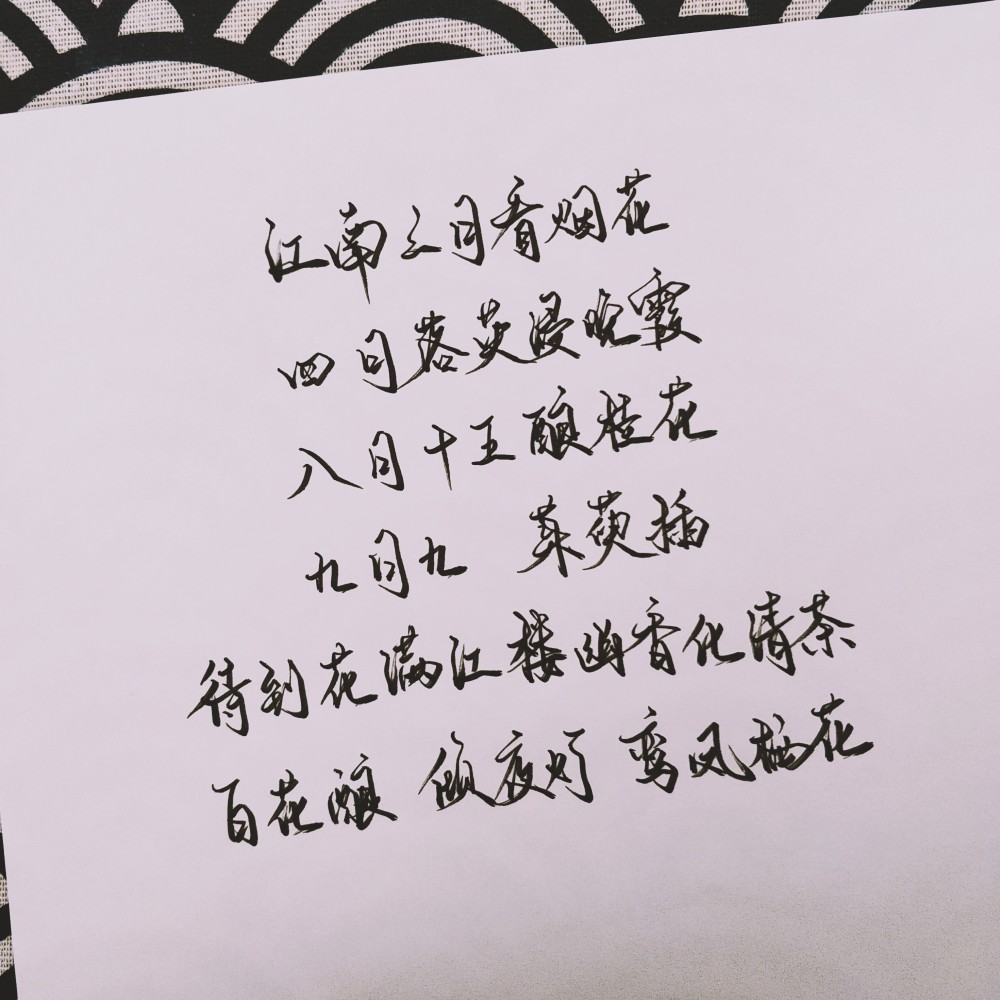 江南三月看烟花
四月落英浸晚霞
八月十五酿桂花
九月九 茱萸插
待到花满江楼幽香化清茶
百花酿 倾夜好 鸾凤栖花